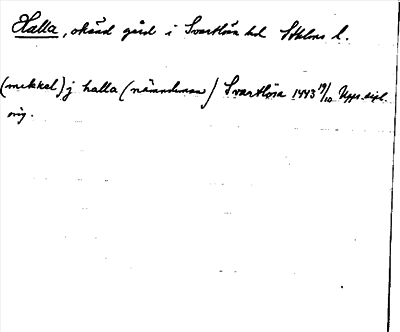 Halla, okänd gård i Svartlösa hd Sthlms l.
(mikkel) j halla (nämndeman) Svartlösa 1443 19/10 Upps. dipl.
orig.